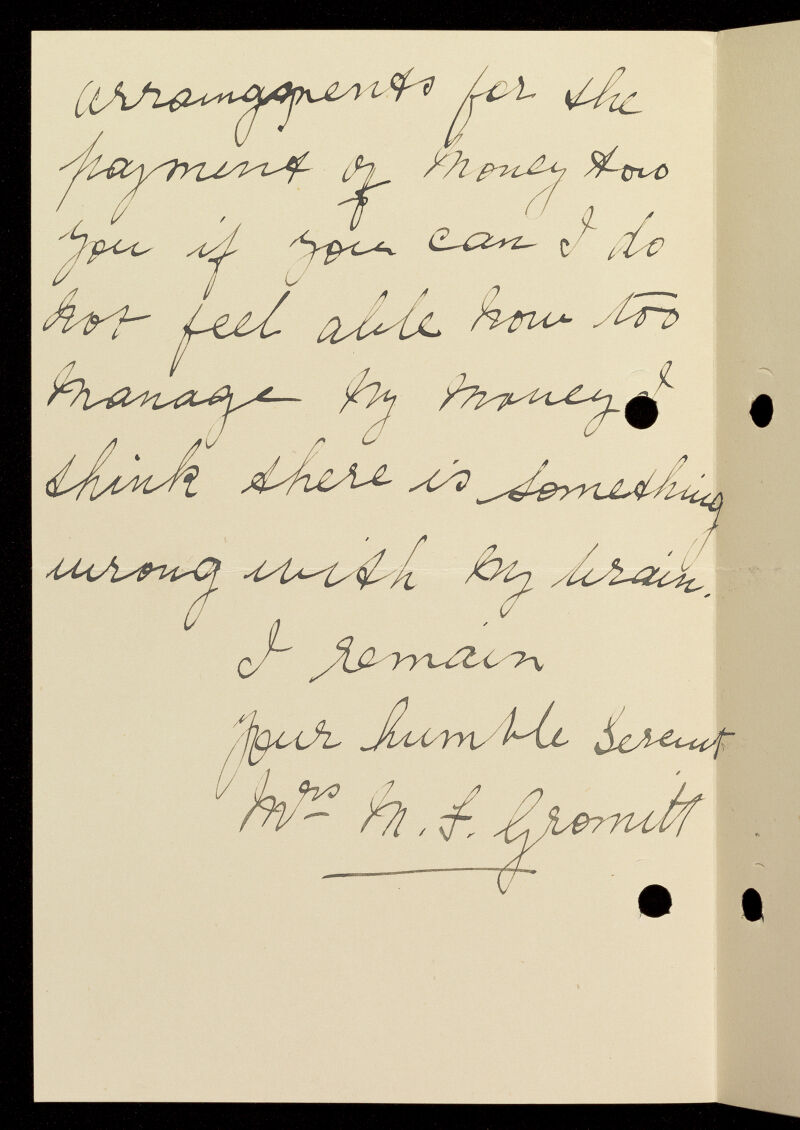 arraingements for the
payment of money too
you if you can I do
not feel able now too
manage my money I
think there is something
wrong with my brain.
I remain
your humble Servent
Mrs M. F. Gromitt